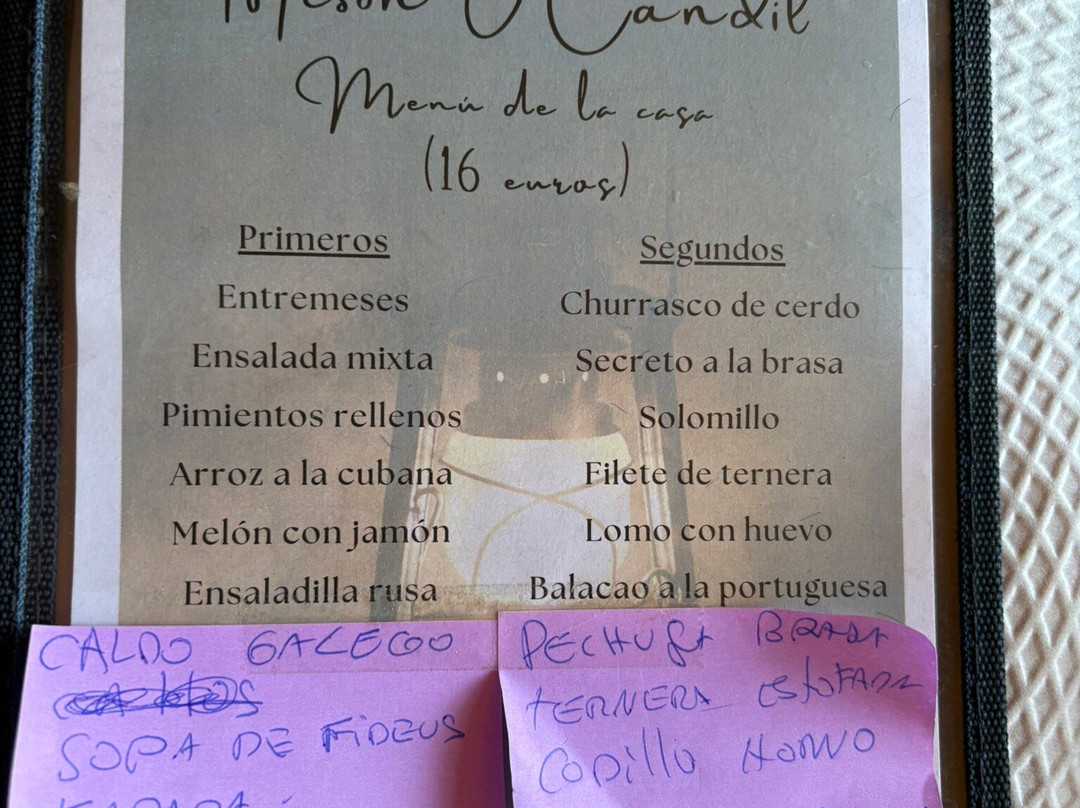 Candil
Menú de la casa
(16 euros)
Primeros
Entremeses
Ensalada mixta
Pimientos rellenos
Arroz a la cubana
Melón con jamón
Ensaladilla rusa
Segundos
Churrasco de cerdo
Secreto a la brasa
Solomillo
Filete de ternera
Lomo con huevo
Balacao a la portuguesa
CALDO GALEGO
SOPA DE FIDEUS
PECHUGA BRASA
TERNERA EStOFADA
CODillo HORNO